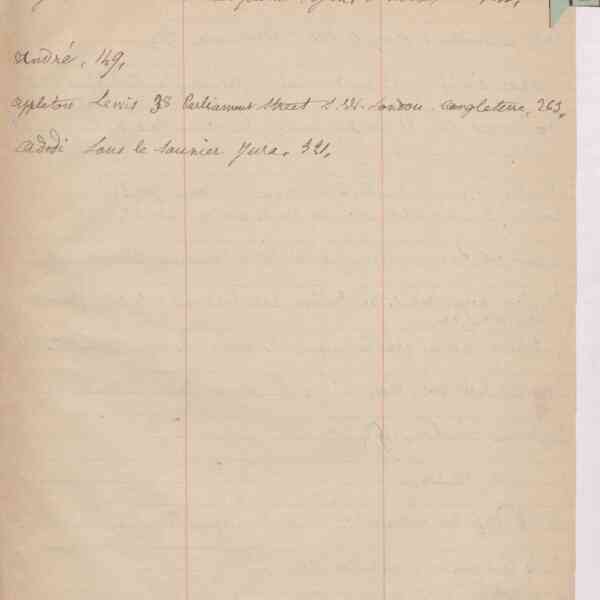 André, 149,
Appleton Lewis 38 Parliament Street S. W. London Angleterre, 263,
Lons le Saunier Jura. 321,